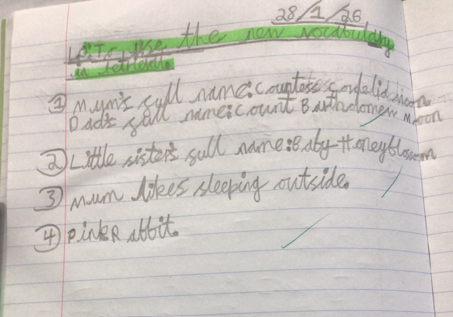 28/1/26
Let's use the new vocabulary
in
① Mum's full name: Countess Cordelia moon
Dad's full name: Count Bartholomew Moon
② Little sister's full name: Baby Honeyblossom
③ Mum likes sleeping outside.
④ Pink Rabbit.